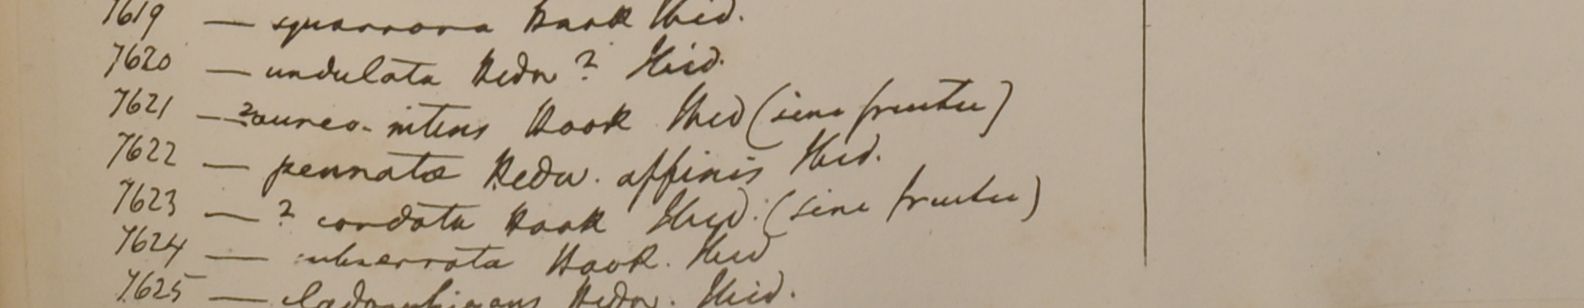 7619 — squarrosa Hook Ibid.
7620 — undulata Hedw ? Ibid.
7621 — ? aureo-nitens Hook Ibid (sine fructu)
7622 — pennata Hedw. affinis Ibid.
7623 — ? cordata Hook Ibid. (sine fructu)
7624 — subserrata Hook. Ibid
7625 — Hedw. Ibid.